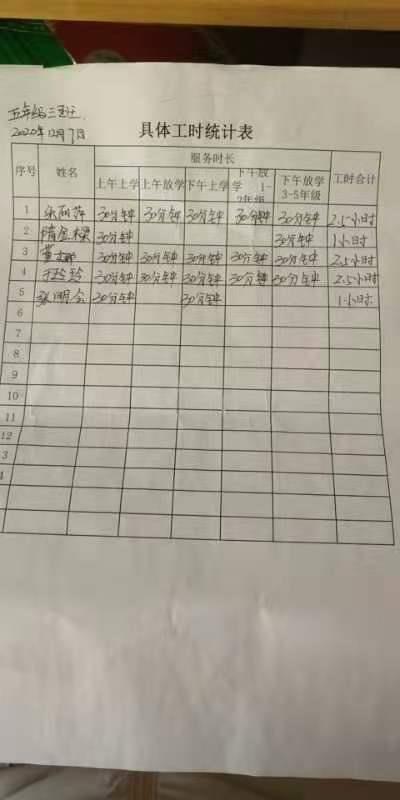 五年级三班
2020年12月7日
具体工时统计表
序号 姓名 服务时长 工时合计
上午上学 上午放学 下午上学 下午放学 1-2年级 下午放学 3-5年级
1 30分钟 30分钟 30分钟 30分钟 30分钟 2.5小时
2 30分钟 30分钟 1小时
3 30分钟 30分钟 30分钟 30分钟 30分钟 2.5小时
4 于玲玲 30分钟 30分钟 30分钟 30分钟 30分钟 2.5小时
5 张明会 30分钟 30分钟 1小时
6
7
8
9
10
11
12
3
4